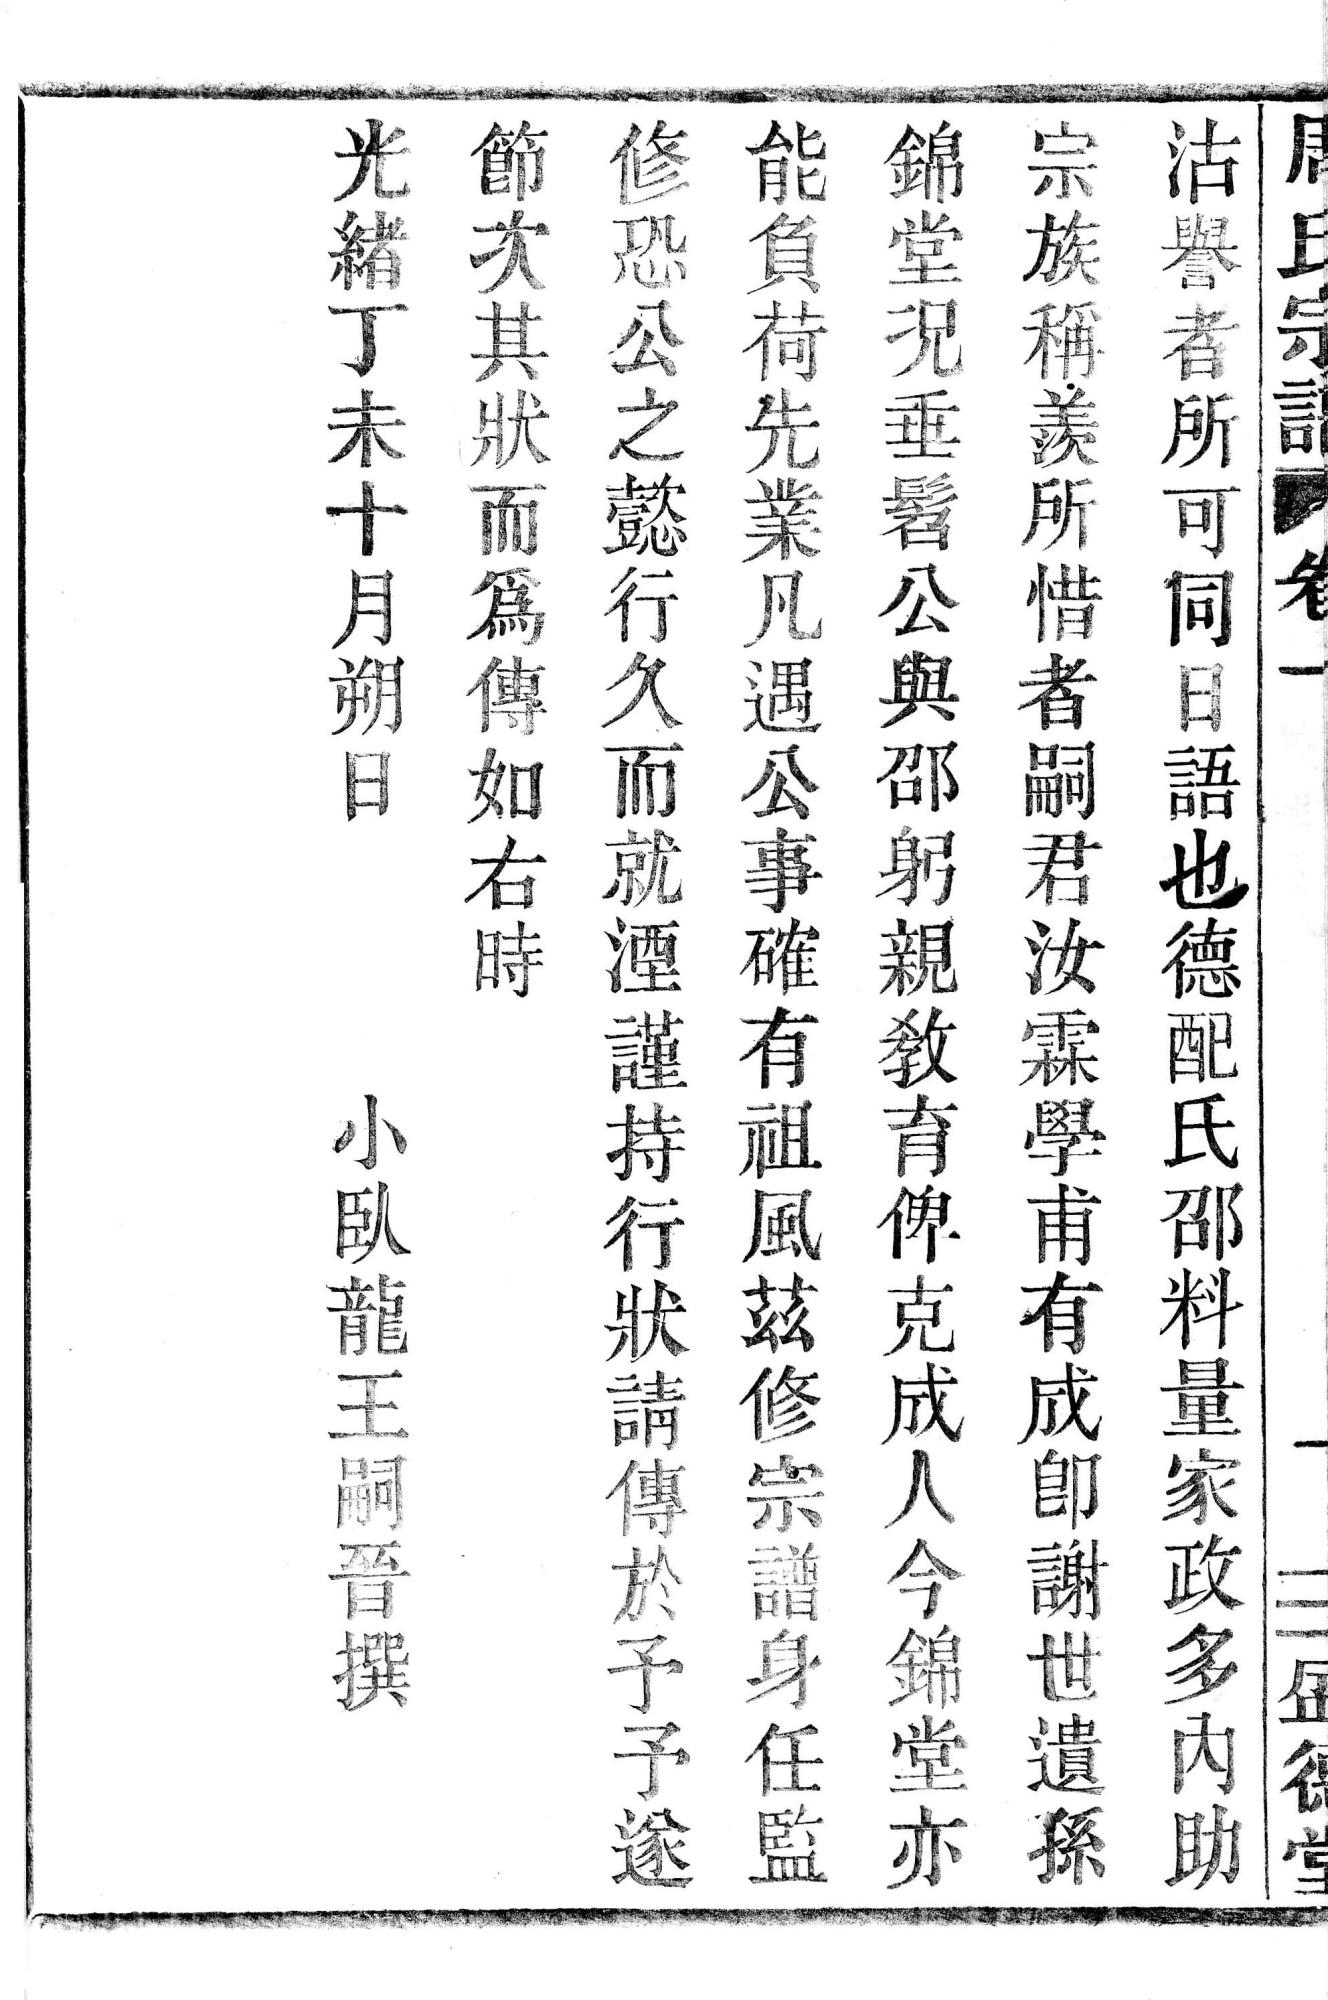 周氏宗譜 卷一 一 三 盛德堂
沽譽者所可同日語也德配氏邵料量家政多內助
宗族稱羨所惜者嗣君汝霖學甫有成卽謝世遺孫
錦堂況垂髫公與邵躬親敎育俾克成人今錦堂亦
能負荷先業凡遇公事確有祖風茲修宗譜身任監
修恐公之懿行久而就湮謹持行狀請傳於予予遂
節次其狀而爲傳如右時
光緒丁未十月朔日 小臥龍王嗣晉撰